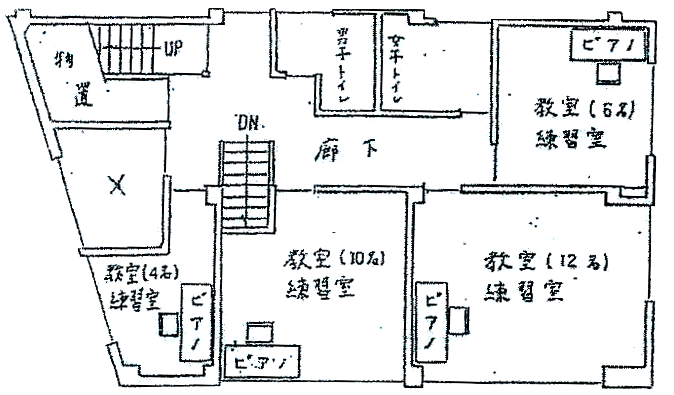 物置
UP
男子トイレ
女子トイレ
ピアノ
教室(6名)
練習室
DN.
廊下
X
教室(4名)
練習室
ピアノ
教室(10名)
練習室
ピアノ
教室(12名)
練習室
ピアノ